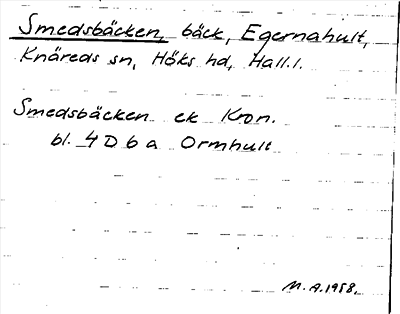 Smedsbäcken, bäck, Egernahult,
Knäreds sn, Höks hd, Hall.l.
Smedsbäcken ek Kron.
bl. 4 D 6 a Ormhult
M.A.1958.